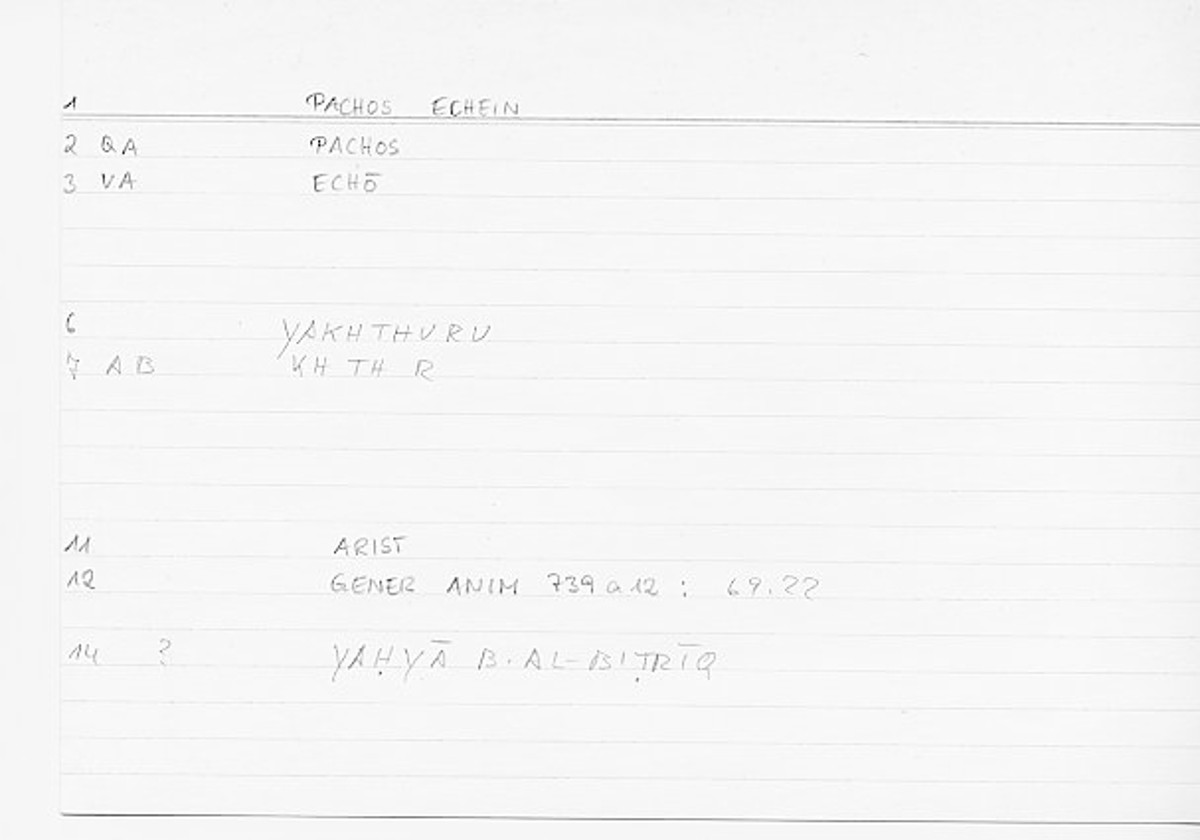 1 PACHOS ECHEIN
2 QA PACHOS
3 VA ECHŌ
6 YAKHTHURU
7 AB KH TH R
11 ARIST
12 GENER ANIM 739a12 : 69.22
14 ? YAḤYĀ B. AL-BIṬRĪQ